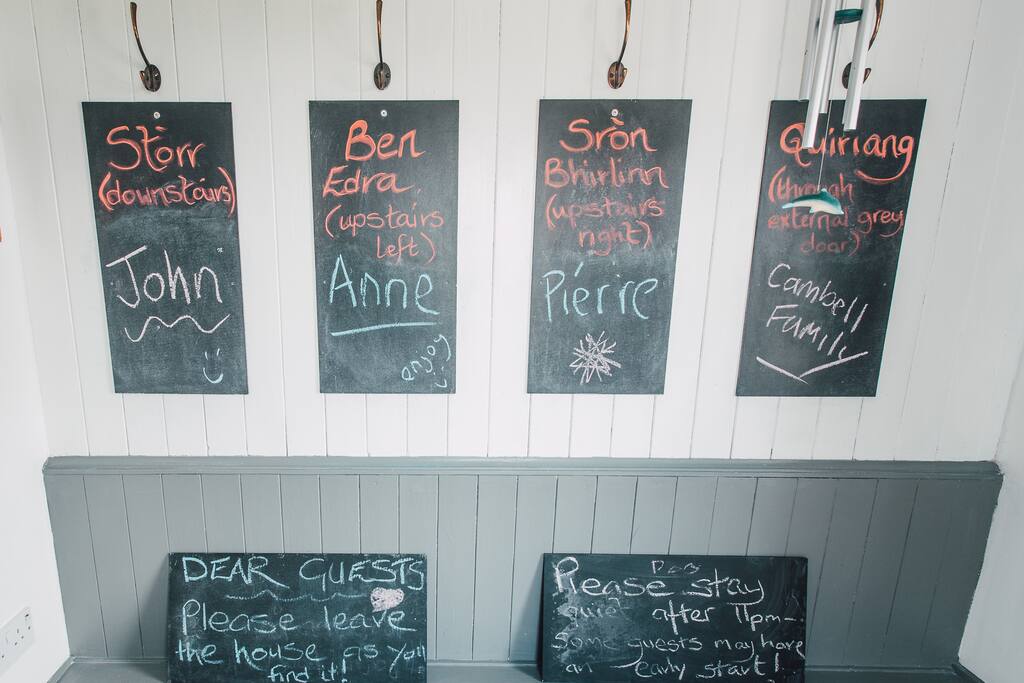 Stòrr
(downstairs)
John
Ben
Edra
(upstairs
left)
Anne
enjoy
Sròn
Bhirlinn
(upstairs
right)
Piérre
Quiriang
(through
external grey
door)
Cambell
Family
DEAR GUESTS
Please leave
the house as you
find it!
Please stay
quiet after 11pm-
Some guests may have
an early start!